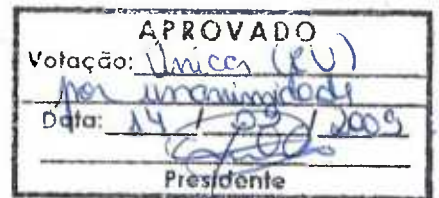 APROVADO
Votação: Única (RU)
por unanimidade
Data: 14 / / 2009
Presidente